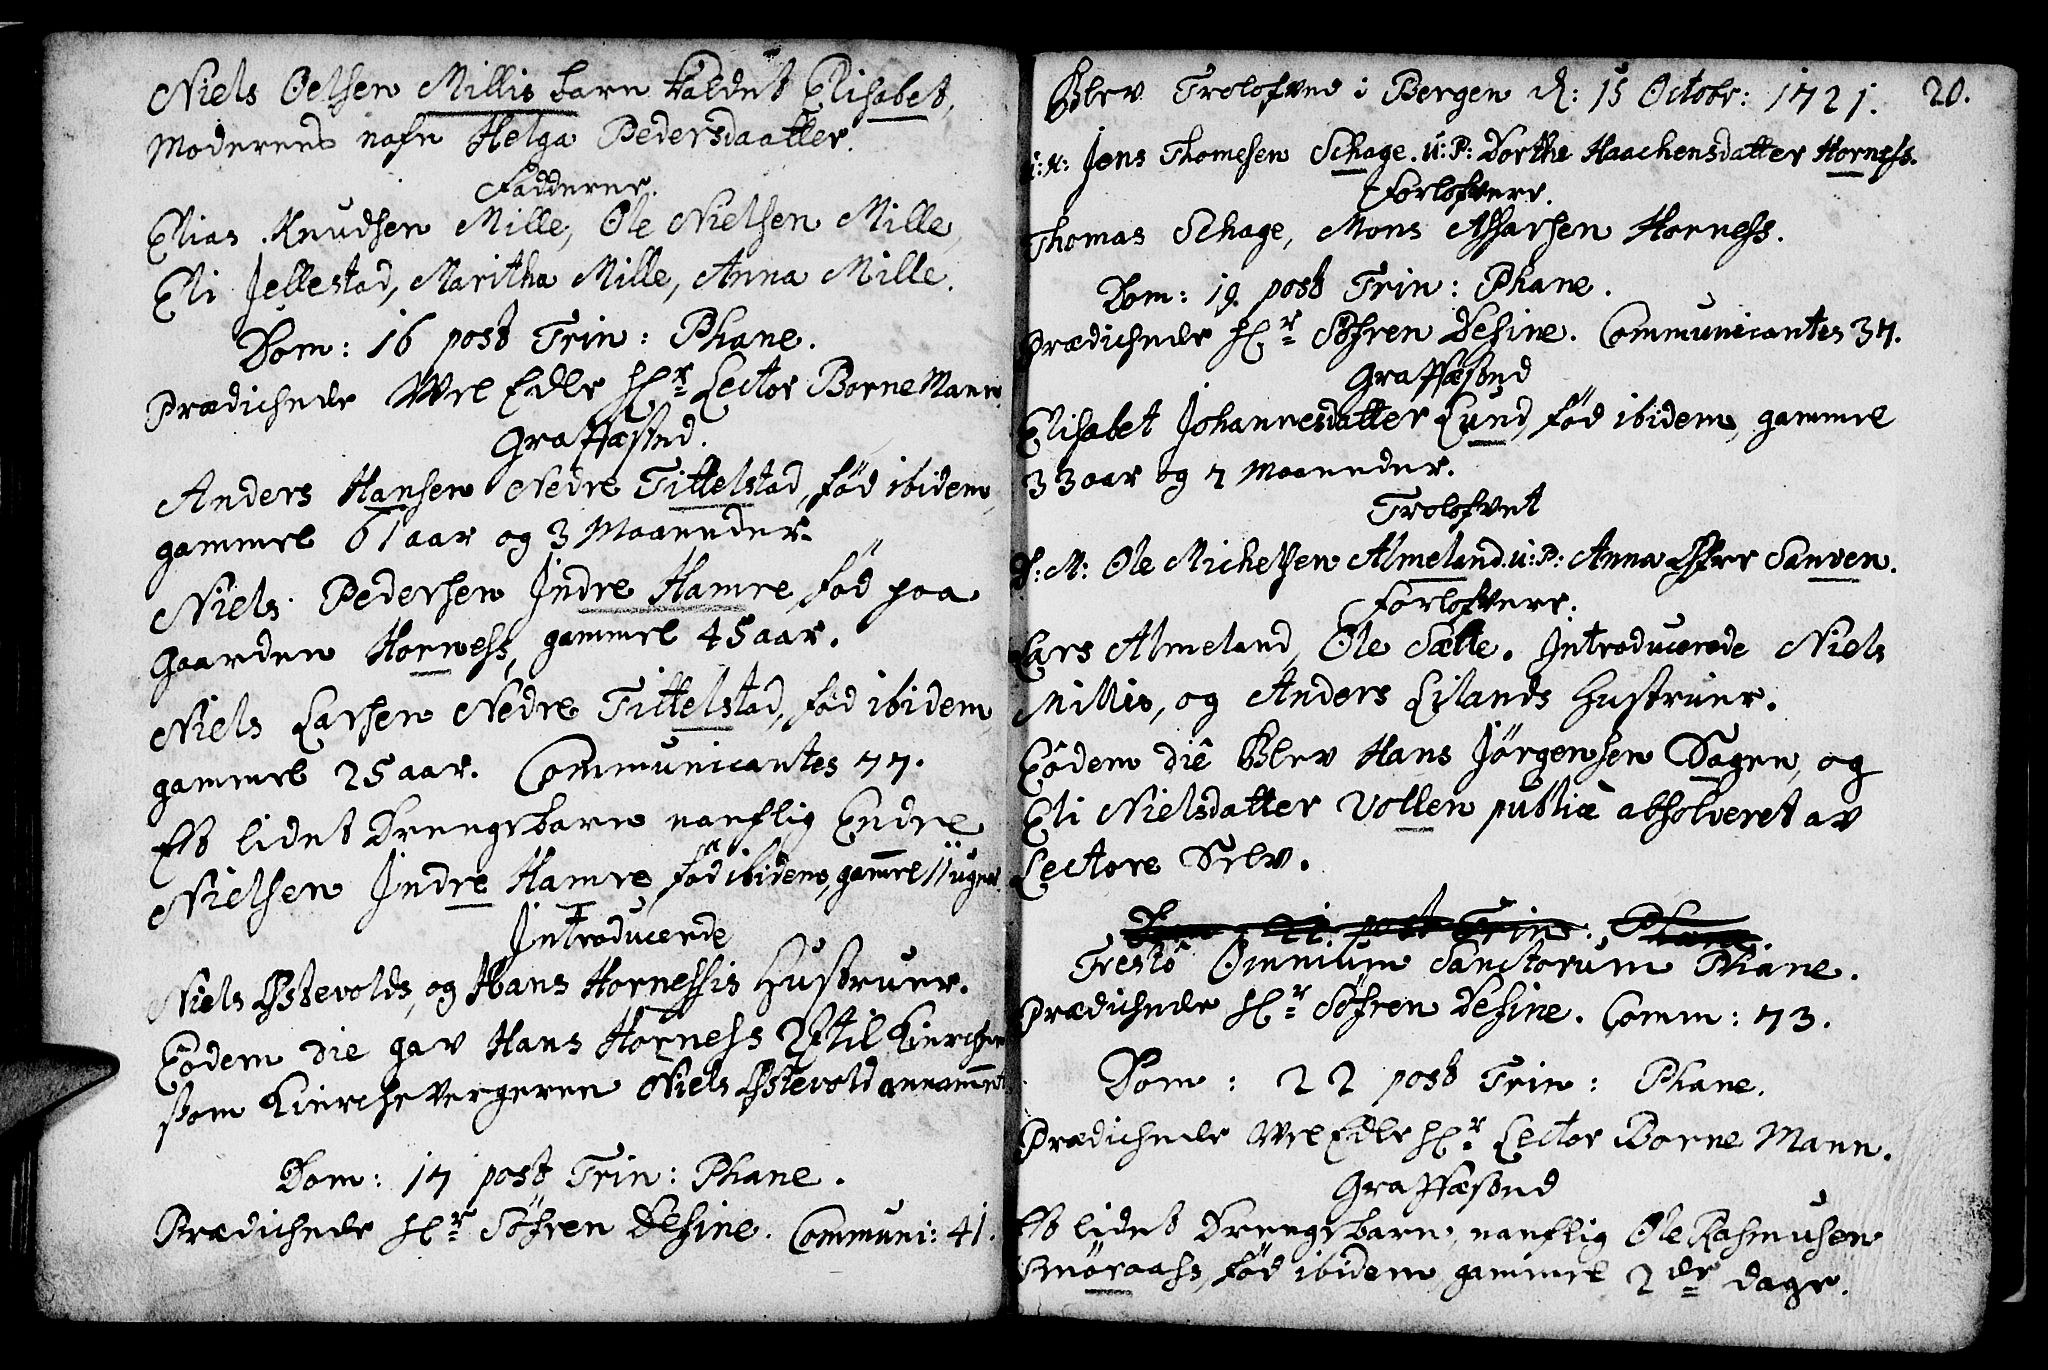 Niels Oelsen Millis barn kaldet Elisabet,
Moderens nafn Helga Pedersdaatter.
Fadderne.
Elias Knudsen Mille, Ole Nielsen Mille,
Eli Jellestad, Maritha Mille, Anna Mille.
Dom: 16 post Trin: Phane.
Prædichede Wel Edle Hr Lector Borne Mann.
Graffæsted.
Anders Hansen Nedre Tittelstad, fød ibidem,
gammel 61 aar og 3 Maaneder.
Niels Pedersen Indre Hamre, fød paa
gaarden Horness, gammel 45 aar.
Niels Larsen Nedre Tittelstad, fød ibidem,
gammel 25 aar. Communicantes 77.
Et lidet Drengebarn nanflig Endre
Nielsen Indre Hamre fød ibidem, gam̄el 11 uger.
Introducerede
Niels Østevolds, og Hans Hornessis Hustruer.
Eodem die gav Hans Horness til Kierchen
som Kierchevergeren Niels Østevold annam̄et
Dom: 17 post Trin: Phane.
Prædichede Hr Söfren Desine. Communi: 41.
20.
Blev Trolofved i Bergen d: 15 Octobr: 1721.
Jens Thomesen Schage. u: P: Dorthe Haachensdatter Horness.
Forlofvere.
Thomas Schage, Mons Assarsen Horness.
Dom: 19 post Trin: Phane.
Prædichede Hr Söfren Desine. Communicantes 37.
Graffæsted
Elisabet Johannesdatter Lund, fød ibidem, gammel
33 aar og 7 Maaneder.
Trolofvet
Ole Michelsen Almeland. u: P: Anna Sanven.
Forlofvere.
Lars Almeland, Ole Sætte. Introducerede Niels
Millis, og Anders Lilands Hustruer.
Eôdem diê Blev Hans Jörgensen Dagen, og
Eli Nielsdatter Vollen publicè absolveret av
Lectore Selv.
Dom: 21. post Trin: Phane
Festô Omnium Sanctorum Phane.
Prædichede Hr Söfren Desine. Comm: 73.
Dom: 22 post Trin: Phane.
Prædichede Wel Edle Hr Lector Borne Mann.
Graffæsted
Et lidet Drengebarn, nanflig Ole Rasmusen
Smöraass, fød ibidem gammel 2de dage.